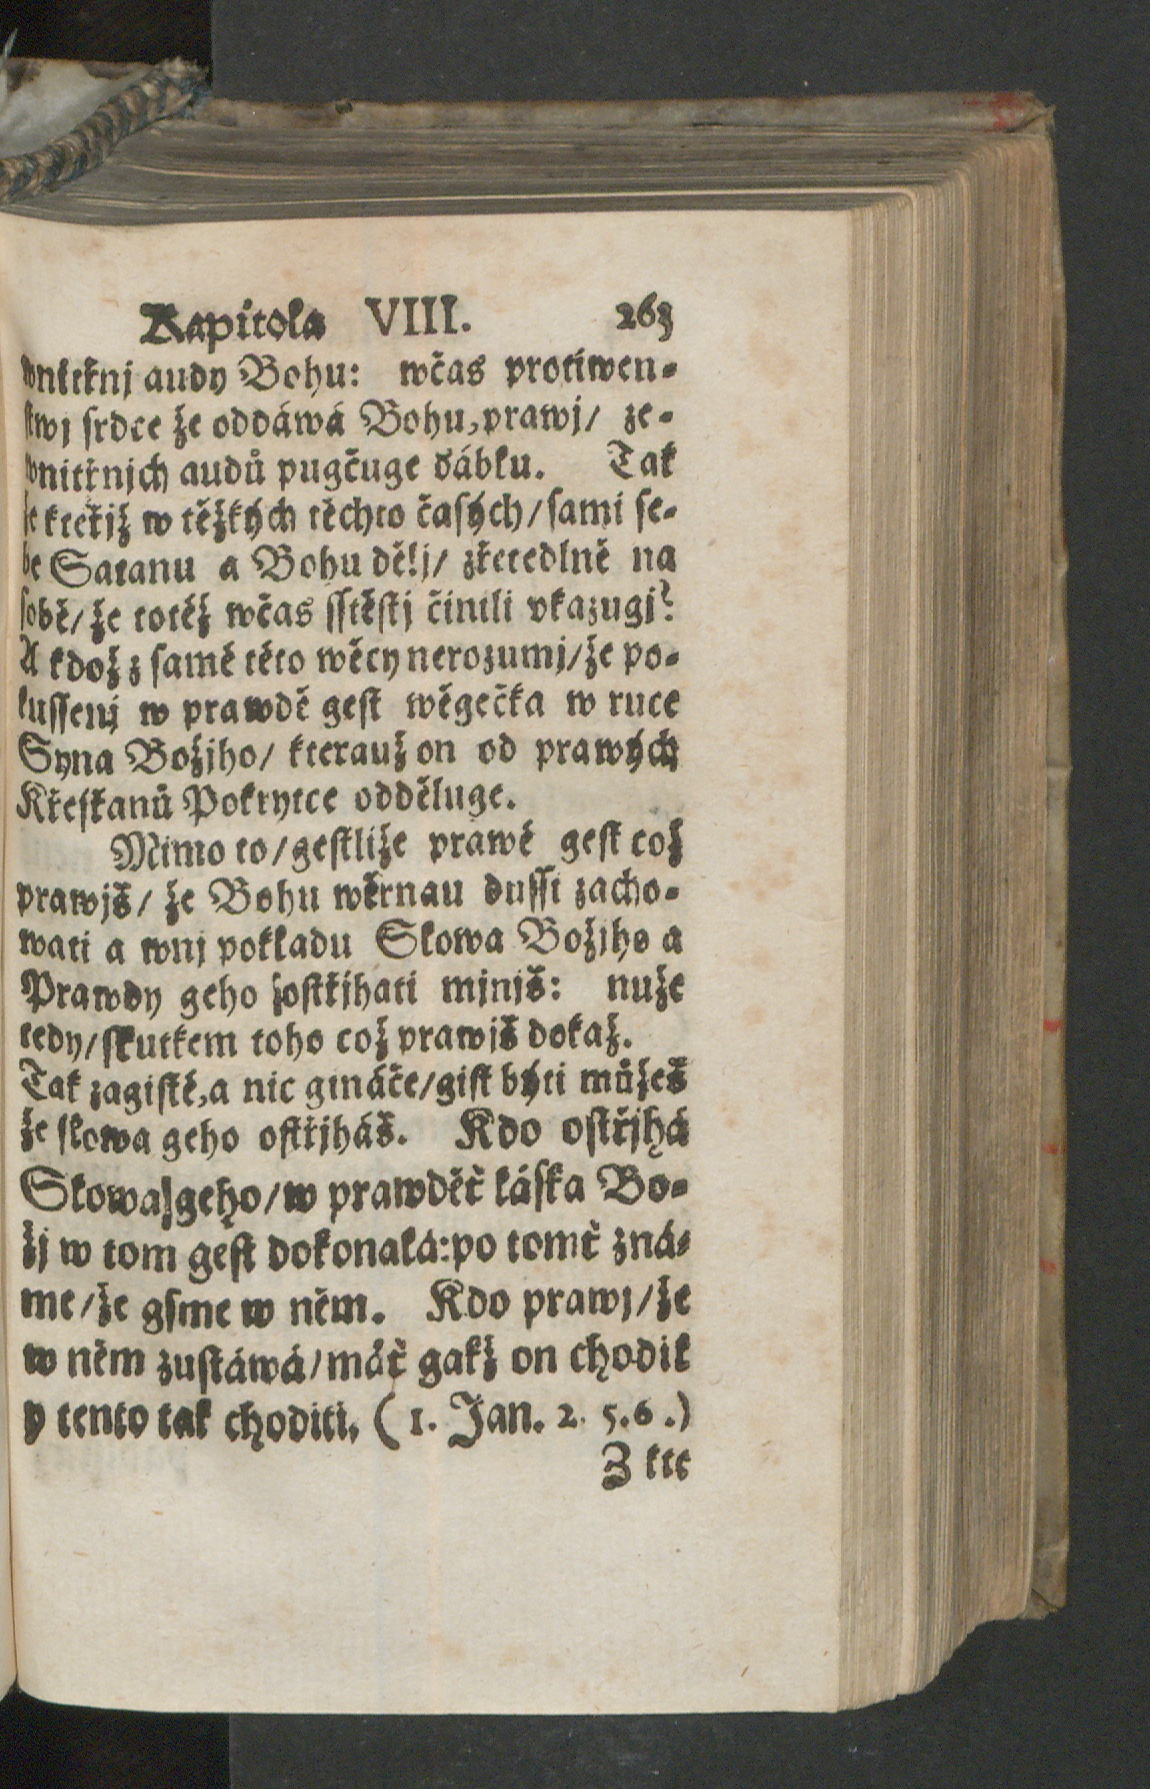 Kapitola VIII. 263
wnitřnj audy Bohu: wčas protiwen-
stwj srdce že oddáwá Bohu, prawj/ ze-
wnitřnjch audů pugčuge ďáblu. Tak
že kteřjž w těžkých těchto časých/ sami se-
be Satanu a Bohu dělj/ zřetedlně na
sobě/ že totéž wčas sstěstj činili vkazugj?
A kdož z samé této wěcy nerozumj/ že po-
kussenj w prawdě gest wěgečka w ruce
Syna Božjho/ kterauž on od prawých
Křesťanů Pokrytce odděluge.
Mimo to/ gestliže prawé gest což
prawjš/ že Bohu wěrnau dussi zacho-
wati a wnj pokladu Slowa Božjho a
Prawdy geho sostřjhati mjnjš: nuže
tedy/ skutkem toho což prawjš dokaž.
Tak zagisté, a nic gináče/ gist býti můžeš
že slowa geho ostřjháš. Kdo ostřjhá
Slowa geho/ w prawděť láska Bo-
žj w tom gest dokonalá: po tomť zná-
me/ že gsme w něm. Kdo prawj/ že
w něm zustáwá/ máť gakž on chodil
y tento tak choditi. (1. Jan. 2. 5. 6.)
Z kte